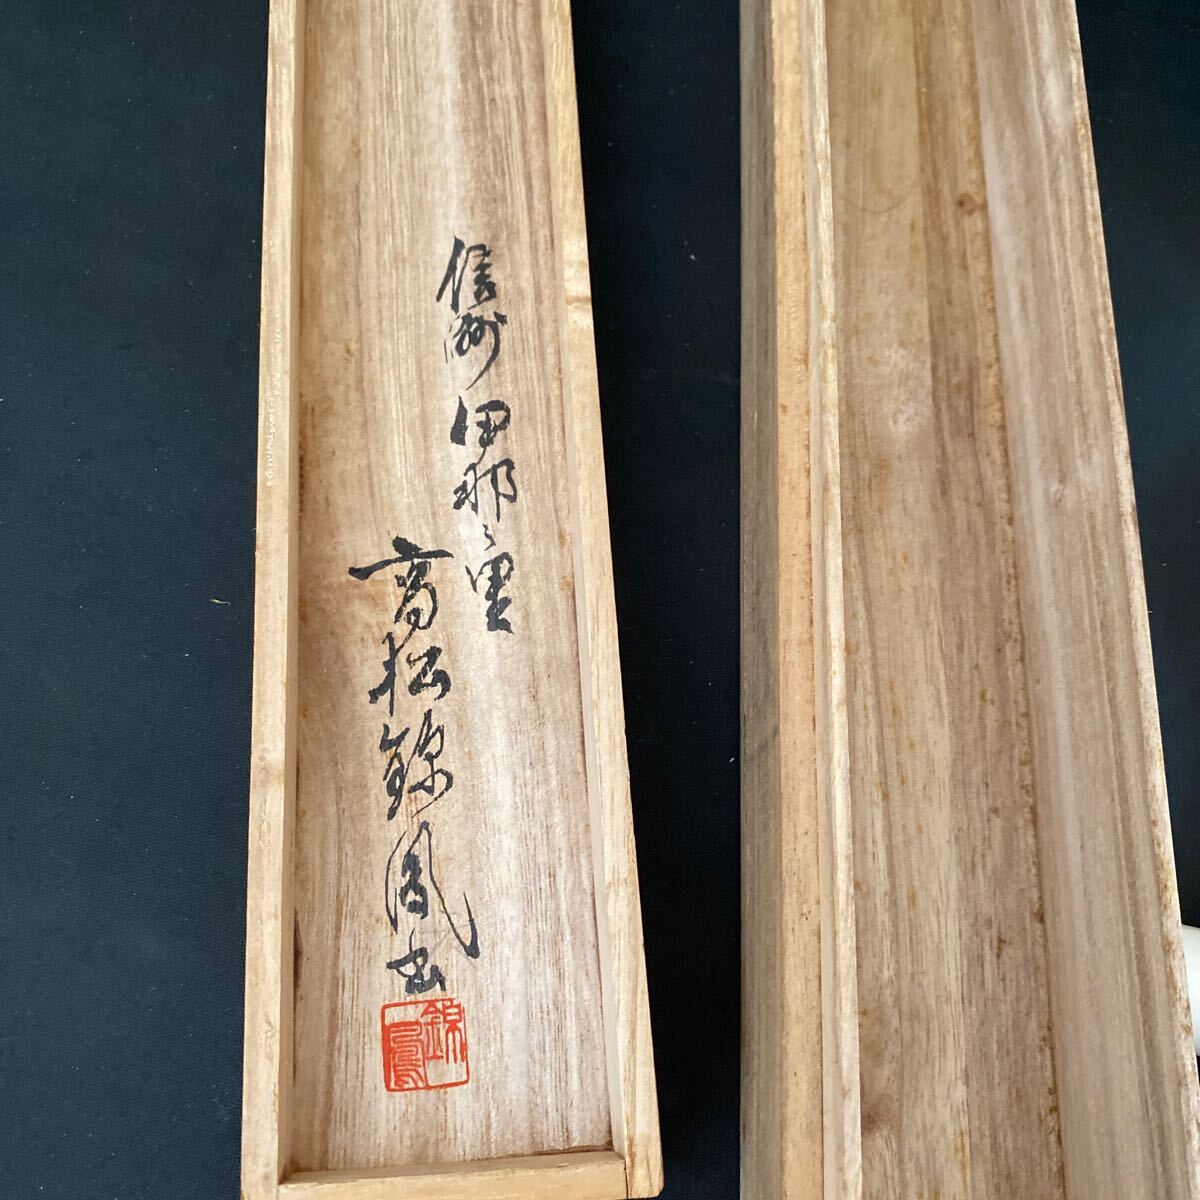 信州伊那之里
高松錦鳳書
錦鳳